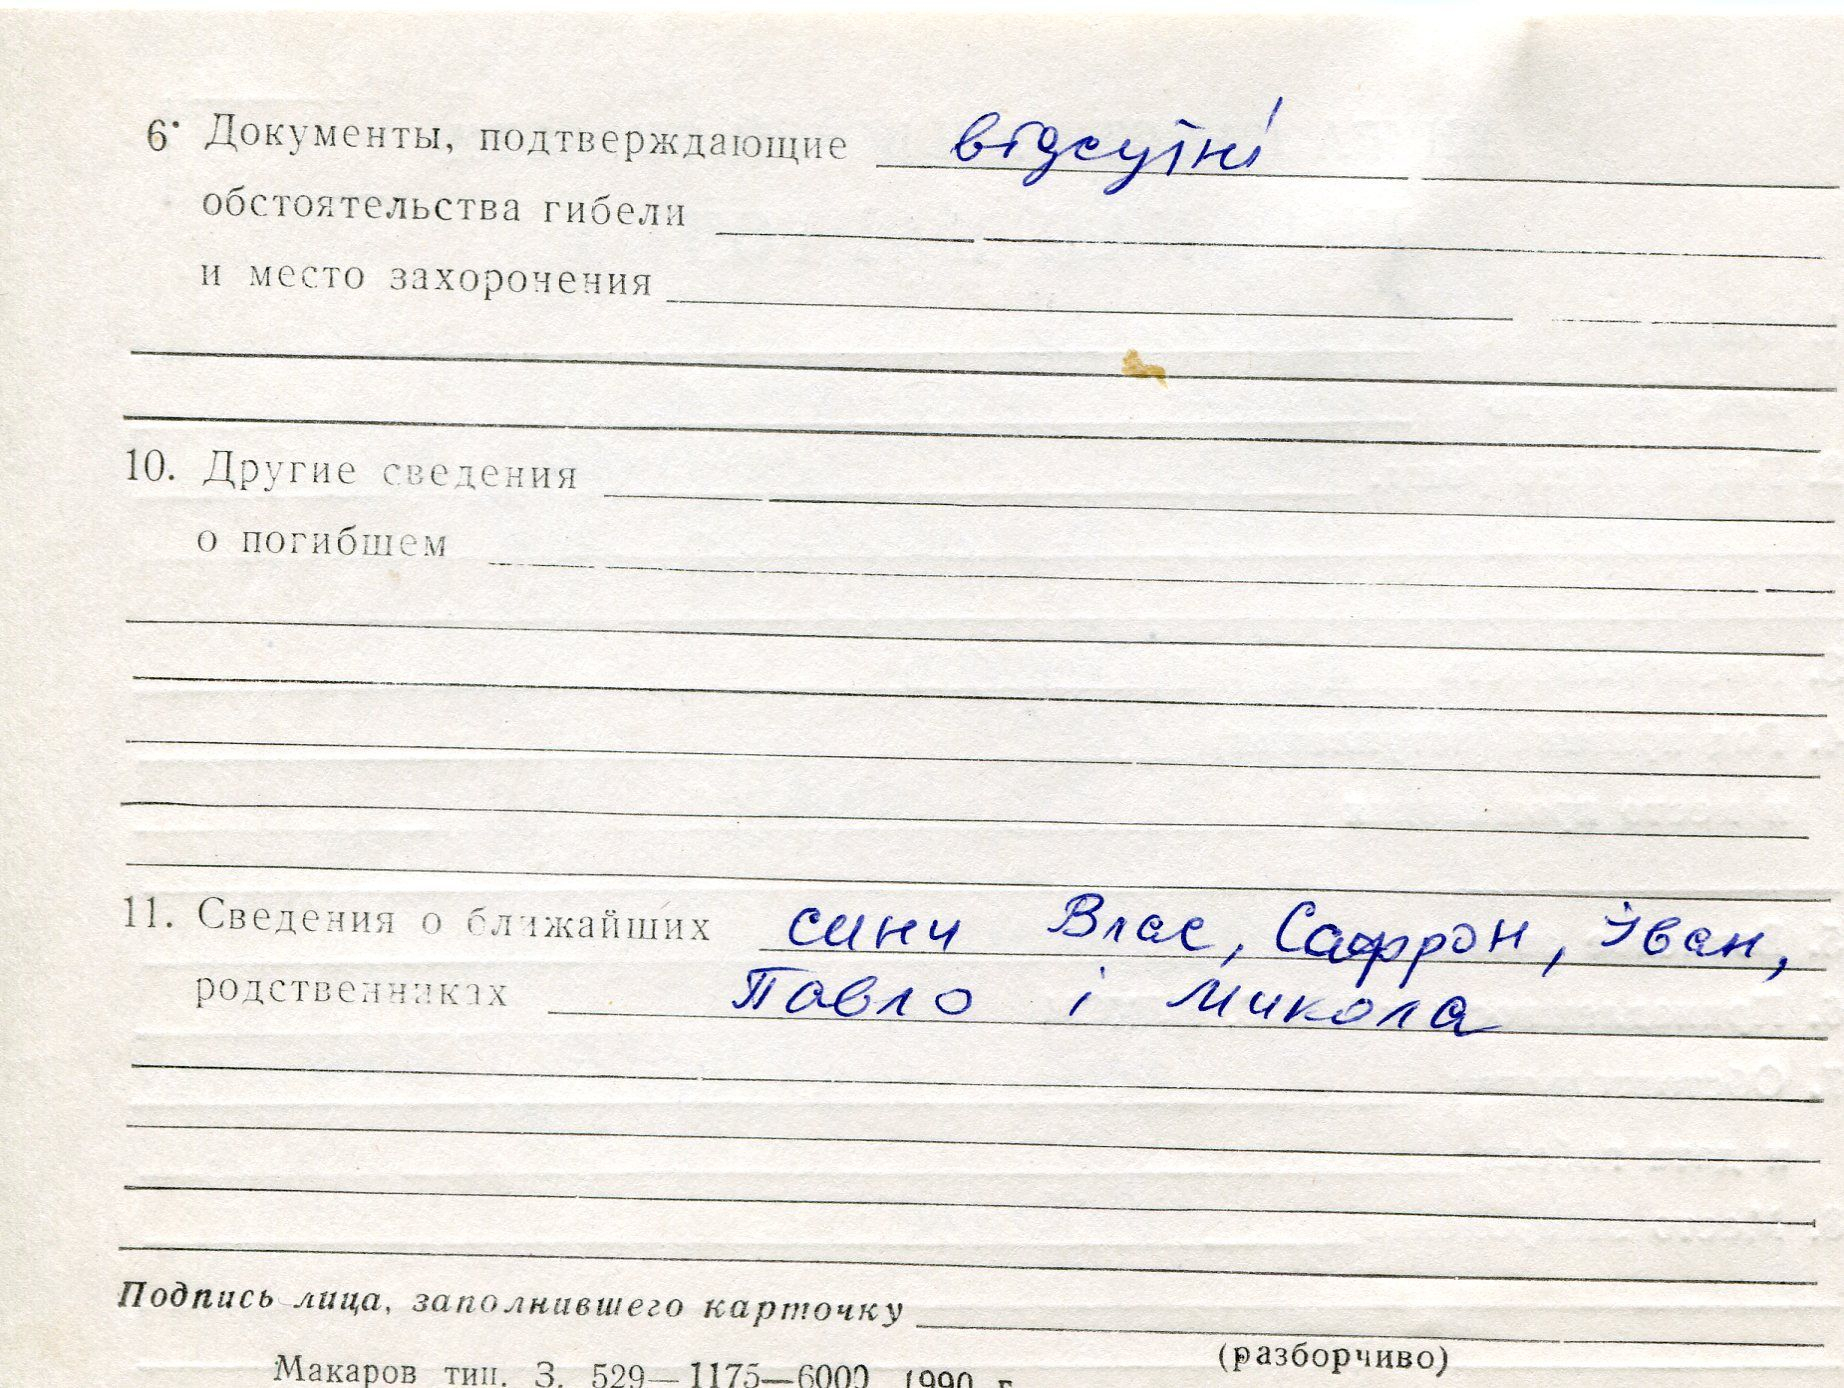 6. Документы, подтверждающие відсутні
обстоятельства гибели
и место захоронения
10. Другие сведения
о погибшем
11. Сведения о ближайших сини Влас, Сафрон, Іван,
родственниках Павло і Микола
Подпись лица, заполнившего карточку
(разборчиво)
Макаров тип. З. 529—1175—6000 1990 г.